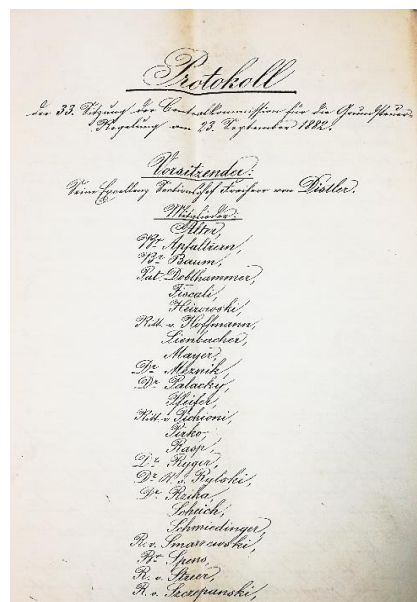 Protokoll
der 33. Sitzung der Centralkommission für die Grundsteuer-
Regelung am 23. September 1882.
Vorsitzender:
Seine Excellenz Sectionschef Freiherr von Distler.
Mitglieder:
Alter,
Bar. Apfaltrern,
Br. Baum,
Rat. Deblhammer,
Fiscali,
Heizowski,
Ritt. v. Hoffmann,
Lienbacher,
Mayer,
Dr. Meznik,
Dr. Palacky,
Pfeifer,
Ritt. v. Pichioni,
Pirko,
Rasp,
Dr. Ryger,
Dr. R. v. Rylski,
Dr. Rziha,
Scheich,
Schmiedinger,
R. v. Smarzewski,
Br. Spens,
R. v. Streer,
R. v. Szczepanski,